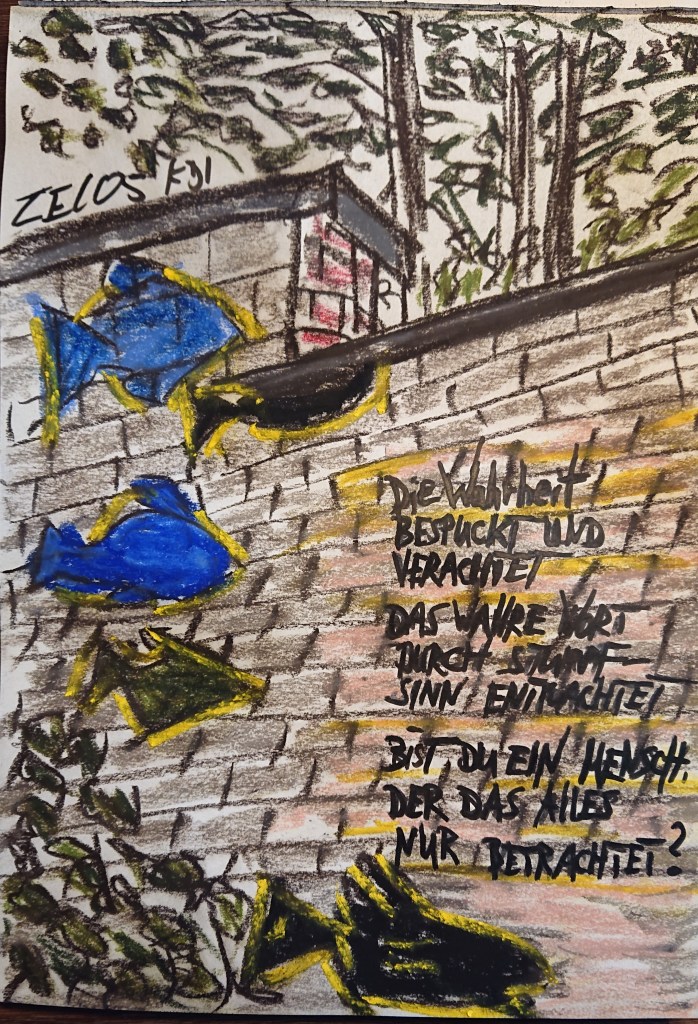 ZELOS KDI
Die Wahrheit
BESPUCKT UND
VERACHTET
DAS WAHRE WORT
DURCH STUMPF-
SINN ENTMACHTET
BIST DU EIN MENSCH.
DER DAS ALLES
NUR BETRACHTET?